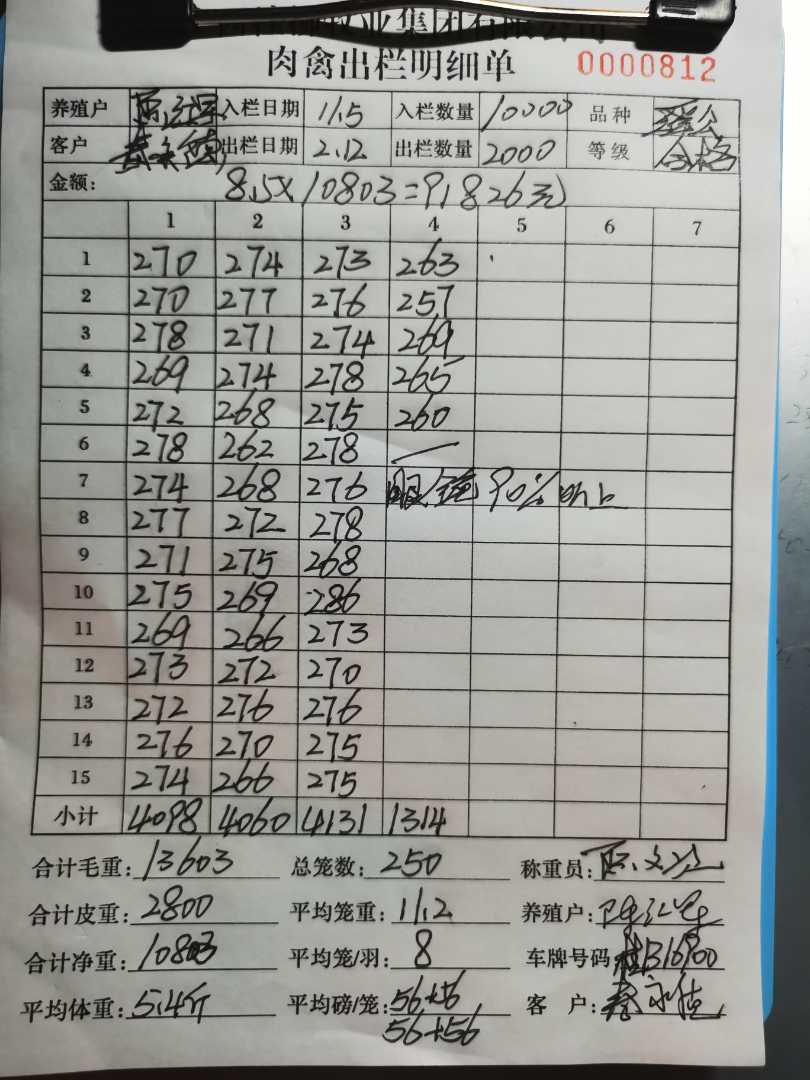 业集团有限公司
肉禽出栏明细单 0000812
养殖户 入栏日期 11.5 入栏数量 10000 品种
客户 出栏日期 2.12 出栏数量 2000 等级 合格
金额: 8.5X10803=91826元
1 2 3 4 5 6 7
1 270 274 273 263
2 270 277 276 257
3 278 271 274 269
4 269 274 278 265
5 272 268 275 260
6 278 262 278 —
7 274 268 276 90%以上
8 277 272 278
9 271 275 268
10 275 269 286
11 269 266 273
12 273 272 270
13 272 276 276
14 276 270 275
15 274 266 275
小计 4098 4060 4131 1314
合计毛重: 13603 总笼数: 250 称重员:
合计皮重: 2800 平均笼重: 11.2 养殖户:
合计净重: 10803 平均笼/羽: 8 车牌号码:
平均体重: 5.4斤 平均磅/笼: 56+56 客 户:
56+56